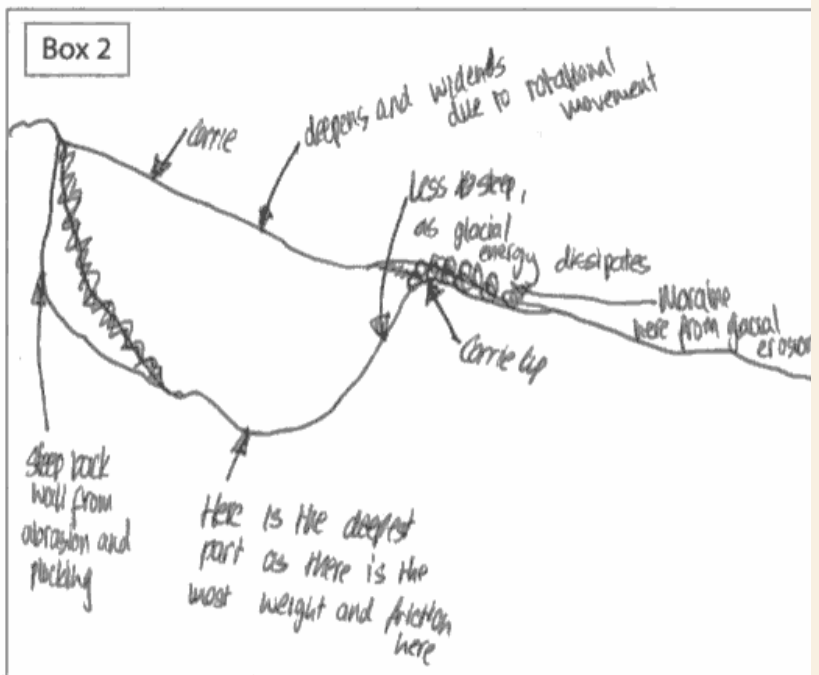 Box 2
Corrie
deepens and widends
due to rotational
movement
Less steep,
as glacial
energy dissipates
Moraine
here from glacial
erosion
Corrie lip
Steep back
wall from
abrasion and
plucking
Here is the deepest
part as there is the
most weight and friction
here